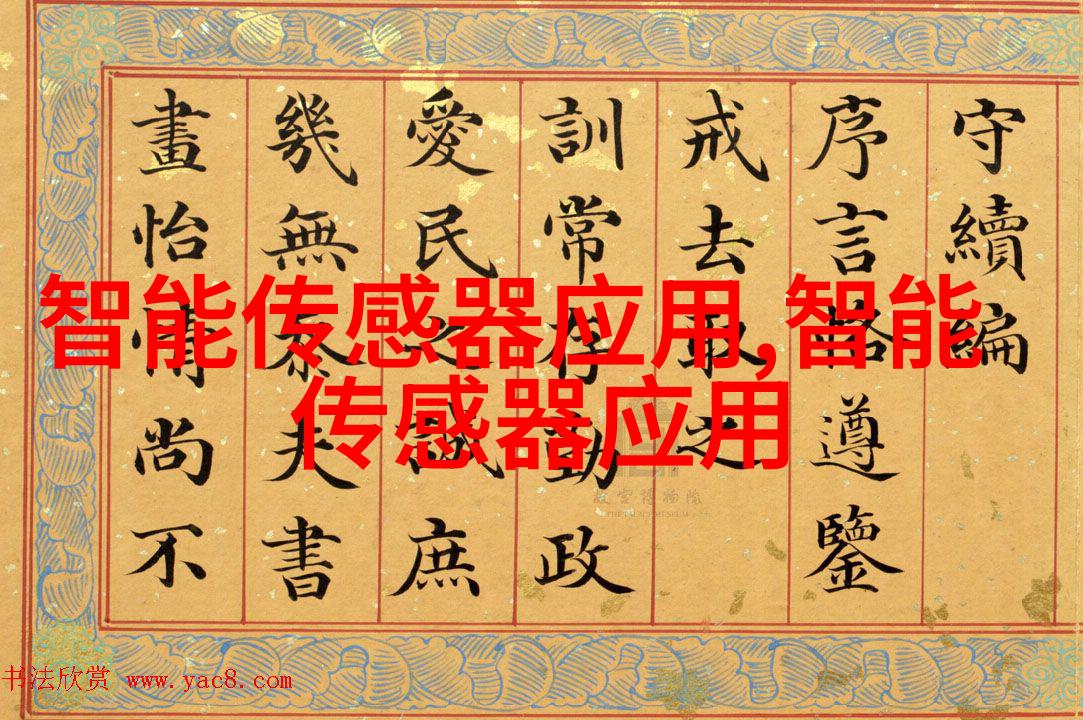 智能传感器应用,智能
传感器应用
守續編
序言恪遵鑒
戒去取之
訓常存勤政
愛民之誠庶
幾無夫書
畫怡情尚不
故宮博物院
THE PALACE MUSEUM
书法欣赏 www.yac8.com